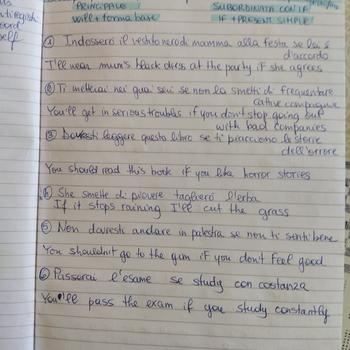 PRINCIPALE
will + forma base
SUBORDINATA CON IF
IF + PRESENT SIMPLE
① Indosserò il vestito nero di mamma alla festa se lei è
d'accordo
I'll wear mum's black dress at the party if she agrees
② Ti metterai nei guai seri se non la smetti di frequentare
cattive compagnie
You'll get in serious troubles if you don't stop going out
with bad companies
③ Dovresti leggere questo libro se ti piacciono le storie
dell'orrore
You should read this book if you like horror stories
④ She smette di piovere taglierò l'erba
If it stops raining I'll cut the grass
⑤ Non dovresti andare in palestra se non ti senti bene
You shouldn't go to the gum if you dont feel good
⑥ Passerai l'esame se study con costanza
You'll pass the exam if you study constantly